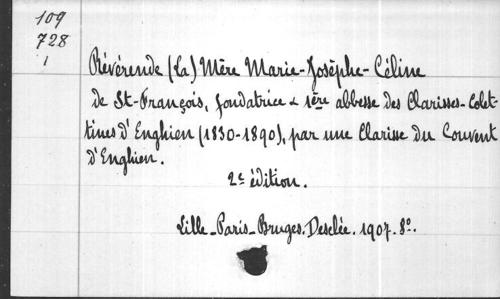 109
728
1
Révérende (La) Mère Marie-Josèphe-Céline
de St-François, fondatrice & 1ère abbesse des Clarisses-Colet-
tines d'Enghien (1830-1890), par une Clarisse du Couvent
d'Enghien.
2e édition.
Lille-Paris-Bruges. Desclée. 1907. 8o.